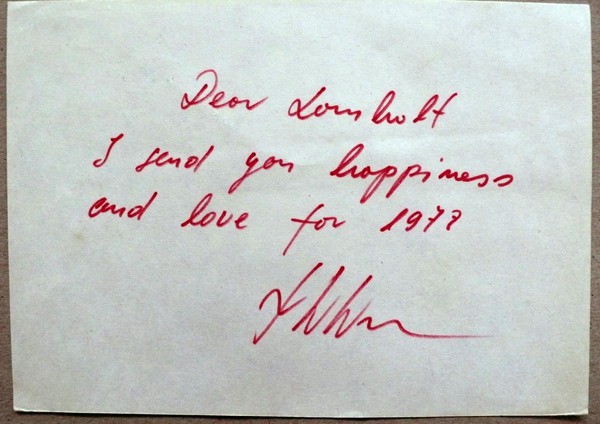 Dear Lomholt
I send you happiness
and love for 1977